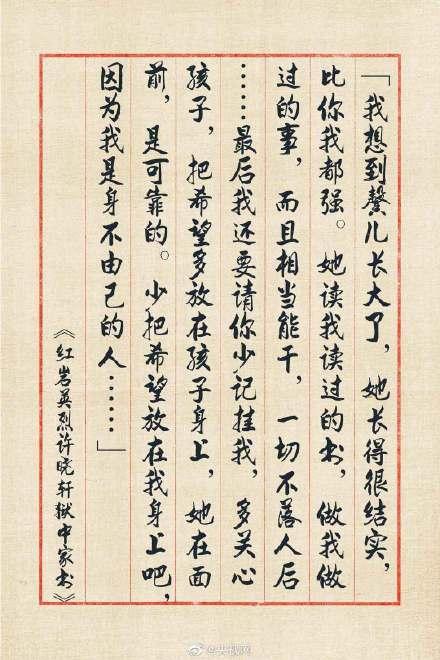 「我想到馨儿长大了，她长得很结实，
比你我都强。她读我读过的书，做我做
过的事，而且相当能干，一切不落人后
……最后我还要请你少记挂我，多关心
孩子，把希望多放在孩子身上，她在面
前，是可靠的。少把希望放在我身上吧，
因为我是身不由己的人……」
《红岩英烈许晓轩狱中家书》
@央视网